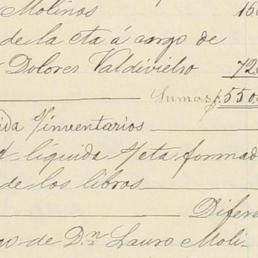 Molinos 16
de la cta á cargo de
Dolores Valdivielso 72
Sumas 550
ida s/inventarios
líquida s/cta formad
de los libros
Difere
de Dn Lauro Moli